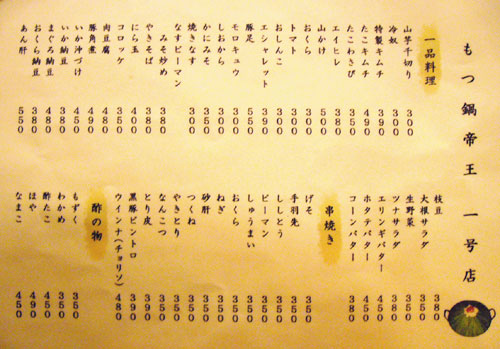 もつ鍋帝王 一号店
一品料理
山芋千切り 300
冷奴 300
特製キムチ 390
たこキムチ 490
たこわさび 350
エイヒレ 380
山かけ 500
おくら 300
トマト 300
おしんこ 300
エシャレット 390
豚足 550
モロキュウ 300
しおから 300
かにみそ 300
焼きなす 300
なすピーマン
みそ炒め 380
やきそば 380
にら玉 400
コロッケ 350
肉豆腐 480
豚角煮 490
いか沖づけ 450
いか納豆 480
まぐろ納豆 480
おくら納豆 380
あん肝 550
枝豆 380
大根サラダ 350
生野菜 350
ツナサラダ 380
エリンギバター 450
ホタテバター 450
コーンバター 380
串焼き
げそ 350
手羽先 350
ししとう 350
ピーマン 350
しゅうまい 350
おくら 350
ねぎ 350
砂肝 350
つくね 350
やきとり 350
なんこつ 350
とり皮 390
黒豚ピントロ 390
ウインナー(チョリソ) 480
酢の物
もずく 350
わかめ 350
酢たこ 450
ほや 490
なまこ 450